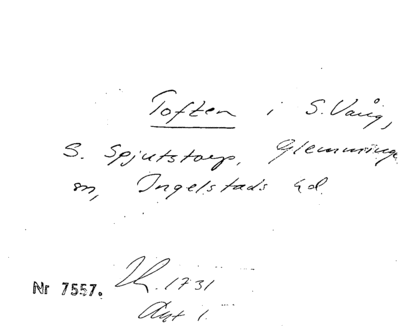 Toften i S. Vång,
S. Spjutstorp, Glemminge
sn, Ingelstads hd.
Nr 7557. 1731
Akt 1.